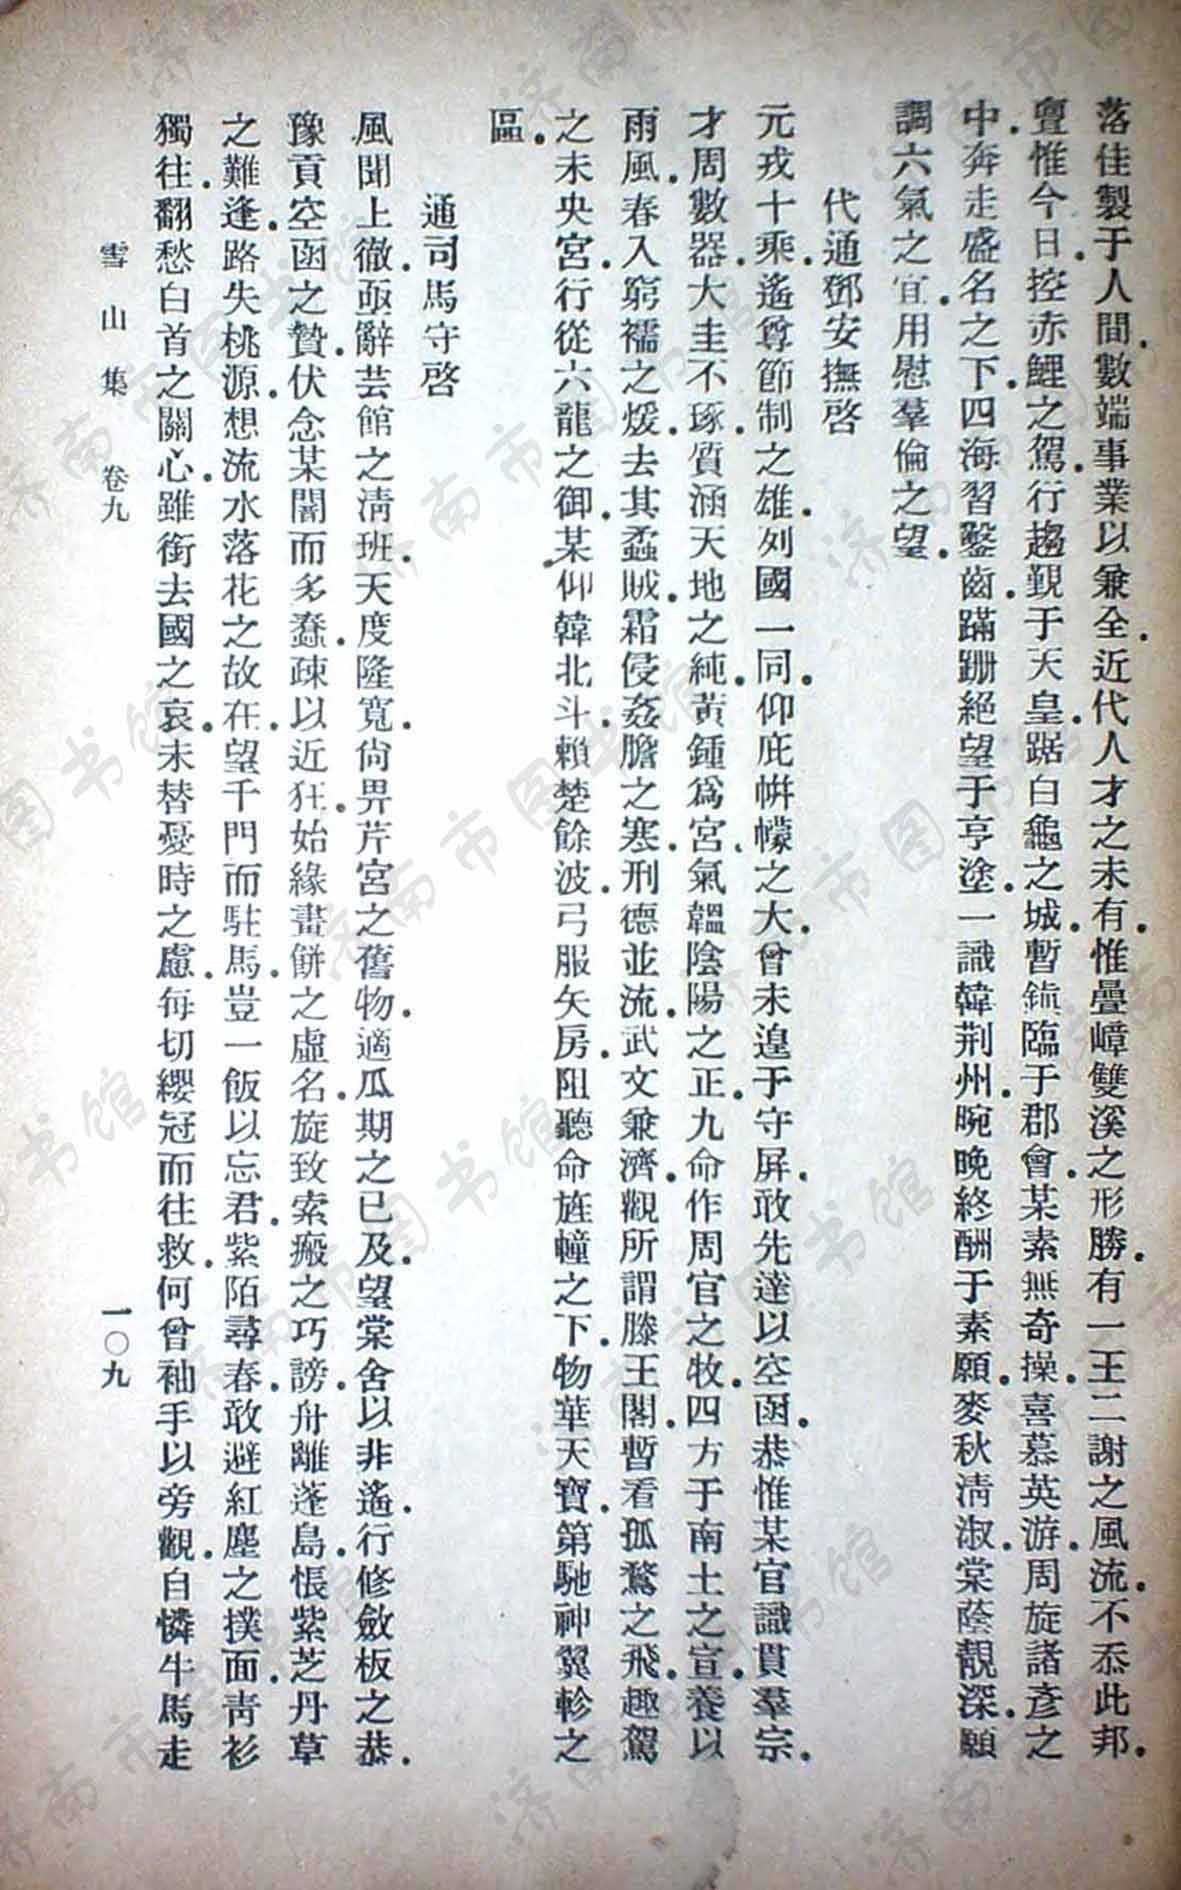 落佳製于人間數端事業以兼全近代人才之未有惟疊嶂雙溪之形勝有一王二謝之風流不忝此邦
亹惟今日控赤鯉之駕行趨覲于天皇踞白龜之城暫鎮臨于郡會某素無奇操喜慕英游周旋諸彥之
中奔走盛名之下四海習鑿齒蹣跚絕望于亨塗一識韓荆州晼晚終酬于素願麥秋清淑棠蔭靚深願
調六氣之宜用慰羣倫之望
代通鄧安撫啓
元戎十乘遙尊節制之雄列國一同仰庇帡幪之大曾未遑于守屏敢先達以空函恭惟某官識貫羣宗
才周數器大圭不琢質涵天地之純黃鍾爲宮氣韞陰陽之正九命作周官之牧四方于南土之宣養以
雨風春入窮襦之煖去其蟊賊霜侵姦膽之寒刑德並流武文兼濟觀所謂滕王閣暫看孤鶩之飛趣駕
之未央宮行從六龍之御某仰韓北斗賴楚餘波弓服矢房阻聽命旌幢之下物華天寶第馳神翼軫之
區
通司馬守啓
風聞上徹亟辭芸館之清班天度隆寬尙畀芹宮之舊物適瓜期之已及望棠舍以非遙行修斂板之恭
豫貢空函之贄伏念某闇而多蠢疎以近狂始緣畫餅之虛名旋致索瘢之巧謗舟離蓬島悵紫芝丹草
之難逢路失桃源想流水落花之故在望千門而駐馬豈一飯以忘君紫陌尋春敢避紅塵之撲面靑衫
獨往翻愁白首之關心雖銜去國之哀未替憂時之慮每切纓冠而往救何曾袖手以旁觀自憐牛馬走
雪山集 卷九 一〇九
济南市图书馆